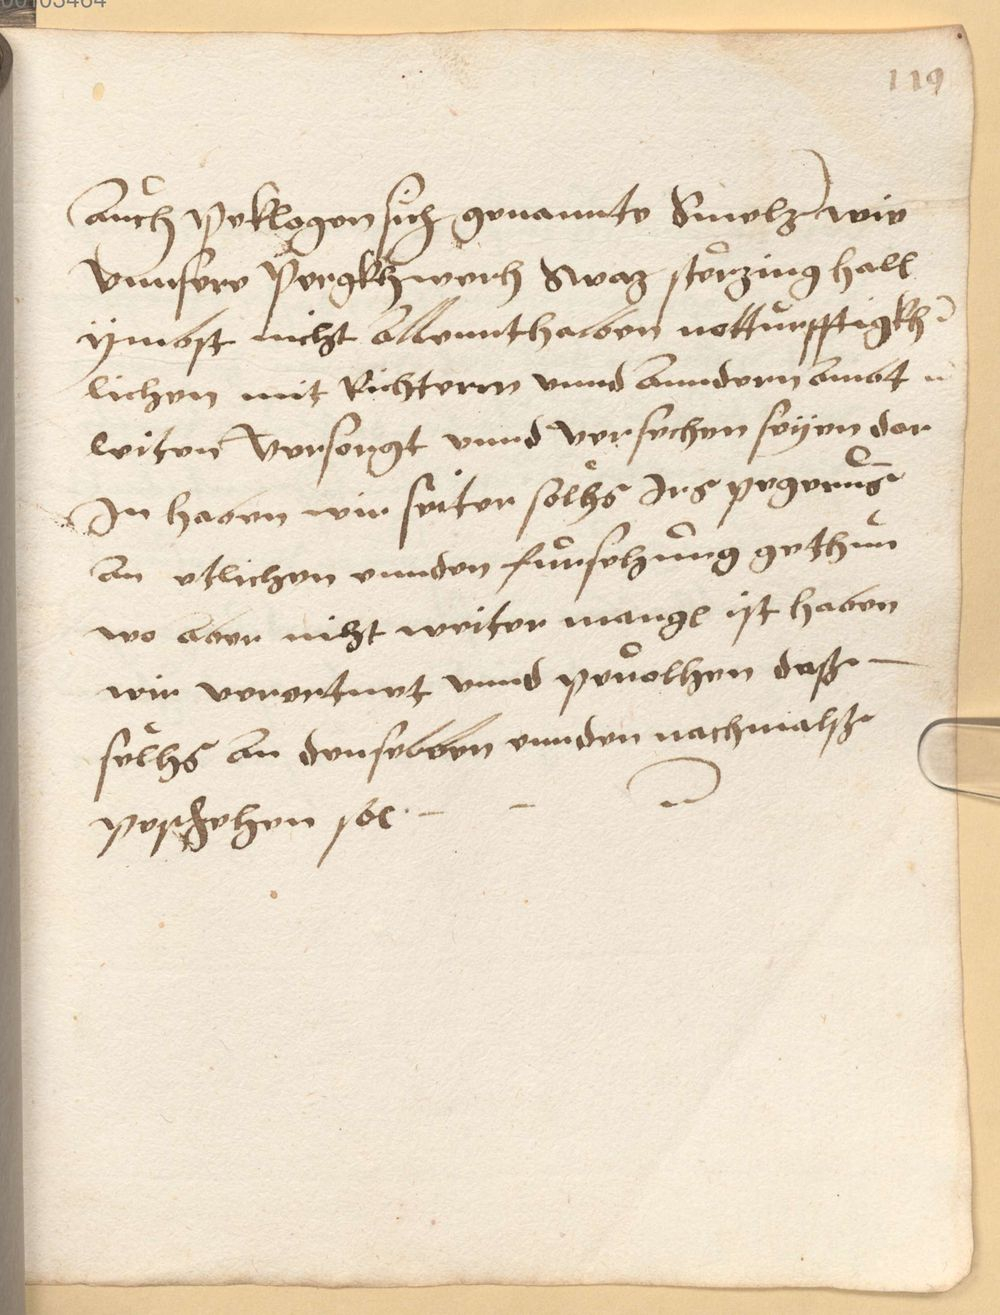 00105464
119
Auch peklagen sich genannte Smelz(er) wie
Vnnsere Pergkhwerch Swaz Sterzing hall
ymbst nicht allennthalben notturfftigkh=
lichen mit Richtern vnnd Anndern ambt=
leiten Versorgt vnnd versechen seyen dar
In haben wir seiter solhs Irs pegerns
an etlichen ennden fursehung gethun
wo aber nicht weiter mangl ist haben
wir verordnet vnnd peuolhen dass
solhs an denselben ennden nachmalss
peschehen sol